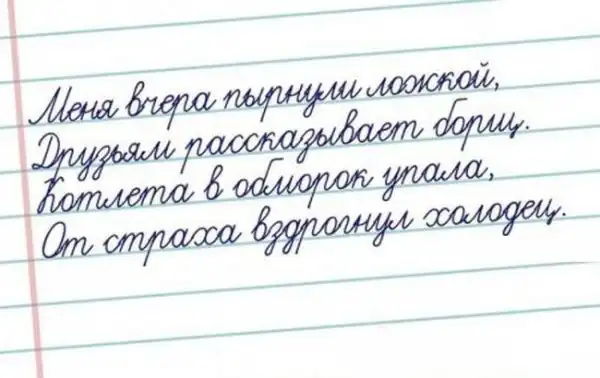 Меня вчера пырнули ложкой,
Друзьям рассказывает борщ.
Котлета в обморок упала,
От страха вздрогнул холодец.